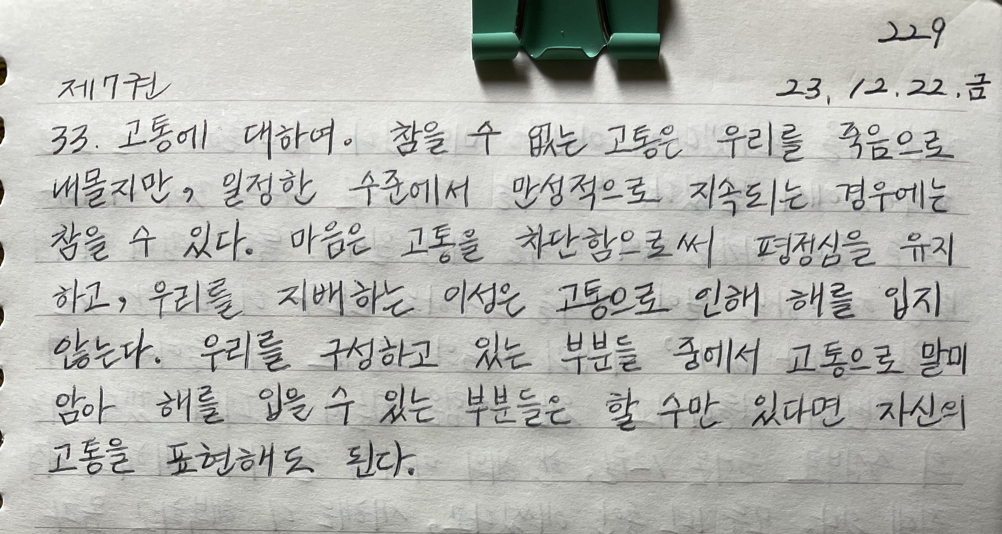 229
제7권 23. 12. 22. 금
33. 고통에 대하여. 참을 수 없는 고통은 우리를 죽음으로
내몰지만, 일정한 수준에서 만성적으로 지속되는 경우에는
참을 수 있다. 마음은 고통을 차단함으로써 평정심을 유지
하고, 우리를 지배하는 이성은 고통으로 인해 해를 입지
않는다. 우리를 구성하고 있는 부분들 중에서 고통으로 말미
암아 해를 입을 수 있는 부분들은 할 수만 있다면 자신의
고통을 표현해도 된다.